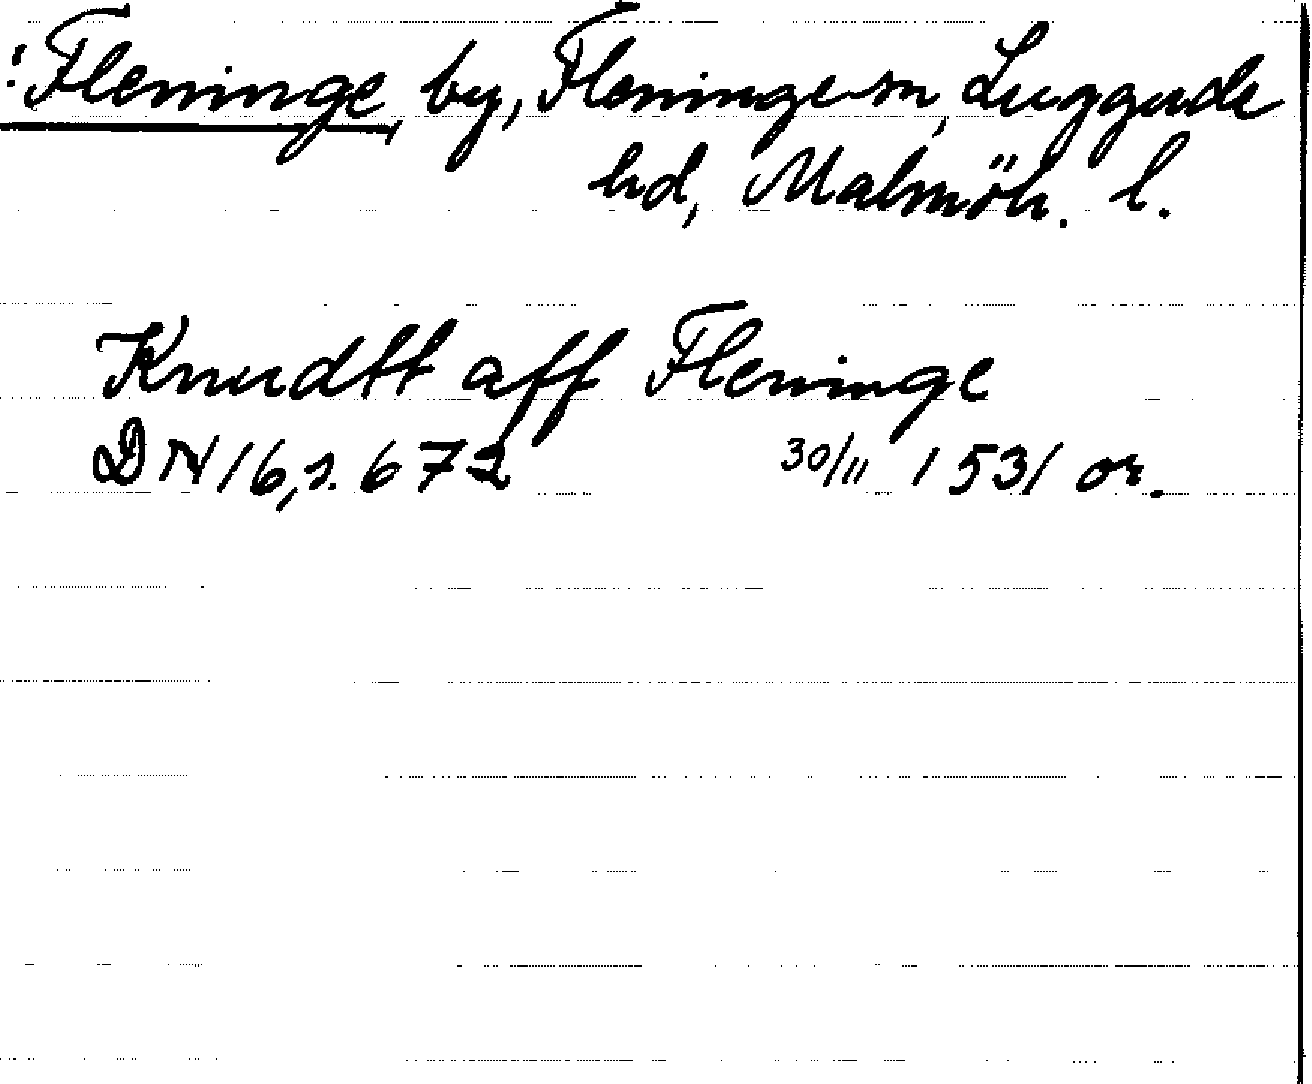 ! Fleninge, by, Fleninge sn, Luggude
hd, Malmöh. l.
Knudtt aff Fleninge
DN 16, s. 672 30/11 1531 or.